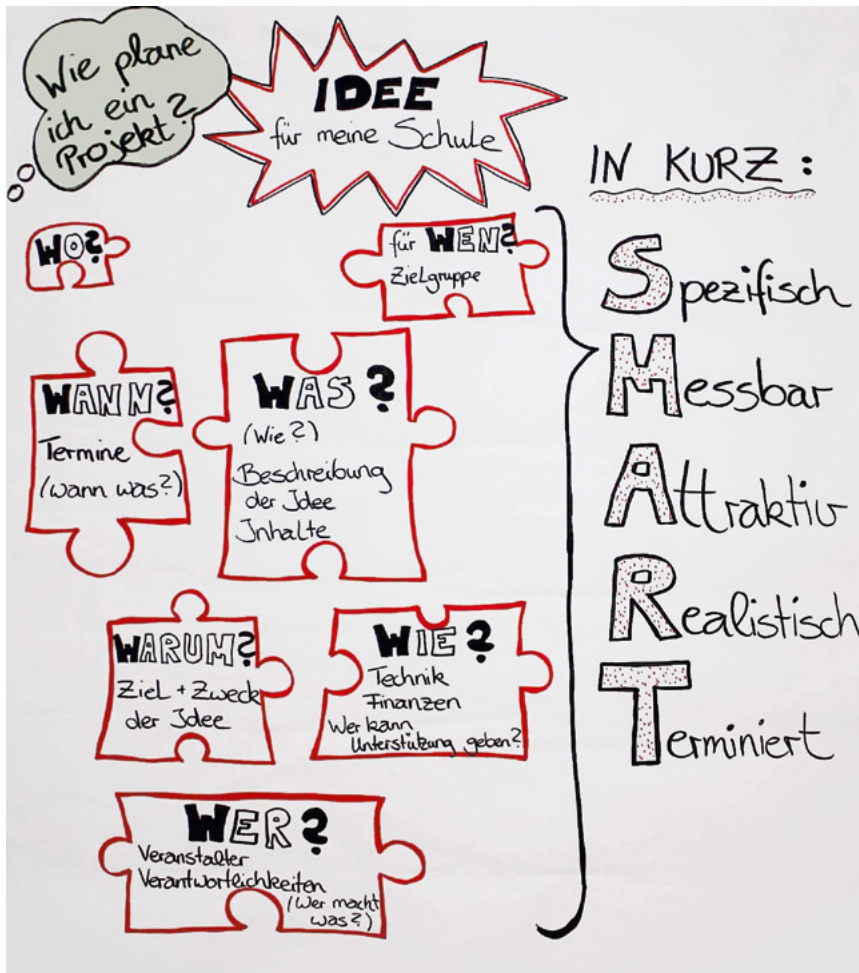 Wie plane
ich ein
Projekt?
IDEE
für meine Schule
IN KURZ:
WO?
für WEN?
Zielgruppe
WANN?
Termine
(wann was?)
WAS?
(Wie?)
Beschreibung
der Idee
Inhalte
WARUM?
Ziel + Zweck
der Idee
WIE?
Technik
Finanzen
Wer kann
Unterstützung geben?
WER?
Veranstalter
Verantwortlichkeiten
(Wer macht
was?)
Spezifisch
Messbar
Attraktiv
Realistisch
Terminiert